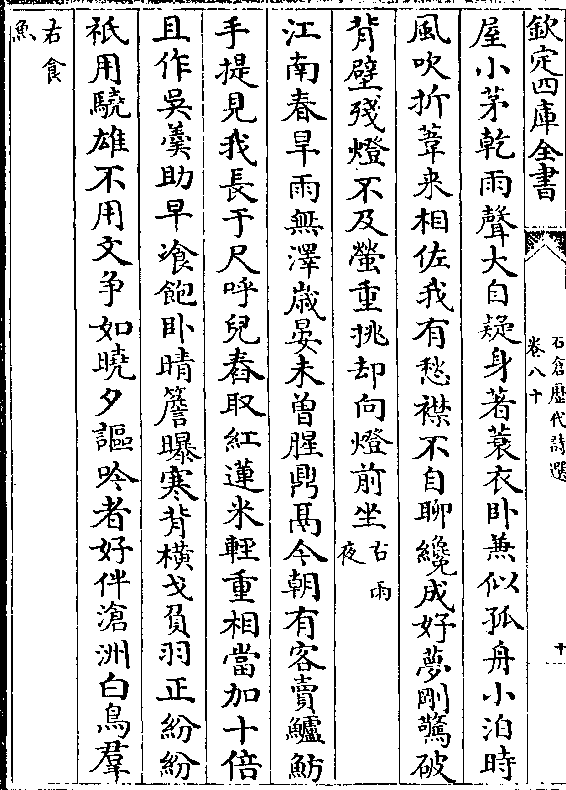 欽定四庫全書
石倉歷代詩選
卷八十
十
屋小茅乾雨聲大自疑身著蓑衣卧兼似孤舟小泊時
風吹折葦来相佐我有愁襟不自聊纔成好夢剛驚破
背壁殘燈不及螢重挑却向燈前坐右雨夜
江南春旱雨無澤歲晏未曾腥鼎鬲今朝有客賣鱸魴
手提見我長于尺呼兒舂取紅蓮米輕重相當加十倍
且作吳羮助早飡飽卧晴簷曝寒背橫戈負羽正紛紛
祇用驍雄不用文争如曉夕謳吟者好伴滄洲白鳥羣
右食魚